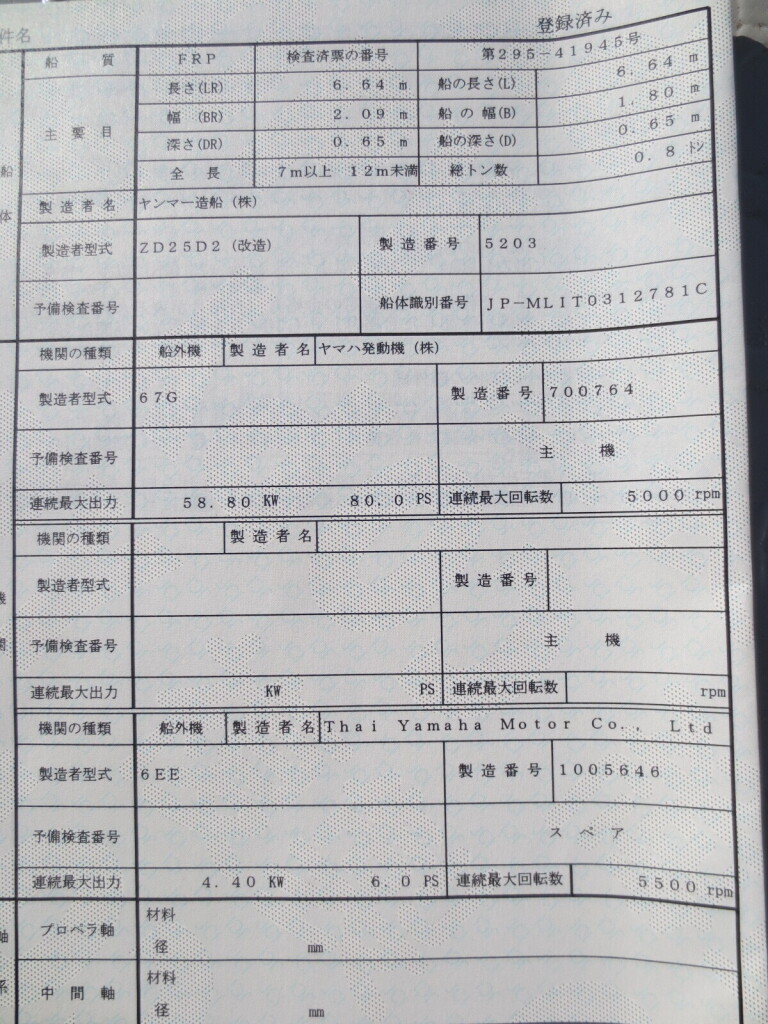 件名
登録済み
船 質 FRP 検査済票の番号 第295-41945号
主要目 長さ(LR) 6.64 m 船の長さ(L) 6.64 m
幅 (BR) 2.09 m 船の幅(B) 1.80 m
深さ(DR) 0.65 m 船の深さ(D) 0.65 m
全長 7m以上 12m未満 総トン数 0.8 トン
船体
製造者名 ヤンマー造船(株)
製造者型式 ZD25D2(改造) 製造番号 5203
予備検査番号 船体識別番号 JP-MLIT0312781C
機関の種類 船外機 製造者名 ヤマハ発動機(株)
製造者型式 67G 製造番号 700764
予備検査番号 主機
連続最大出力 58.80 KW 80.0 PS 連続最大回転数 5000 rpm
機関の種類 製造者名
製造者型式 製造番号
機関
予備検査番号 主機
連続最大出力 KW PS 連続最大回転数 rpm
機関の種類 船外機 製造者名 Thai Yamaha Motor Co., Ltd
製造者型式 6EE 製造番号 1005646
予備検査番号 スペア
連続最大出力 4.40 KW 6.0 PS 連続最大回転数 5500 rpm
軸系
プロペラ軸 材料
径 mm
中間軸 材料
径 mm